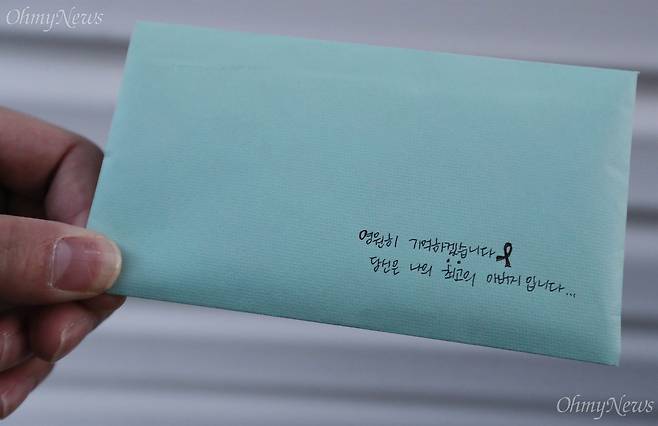 OhmyNews
영원히 기억하겠습니다
당신은 나의 최고의 아버지입니다...
OhmyNews